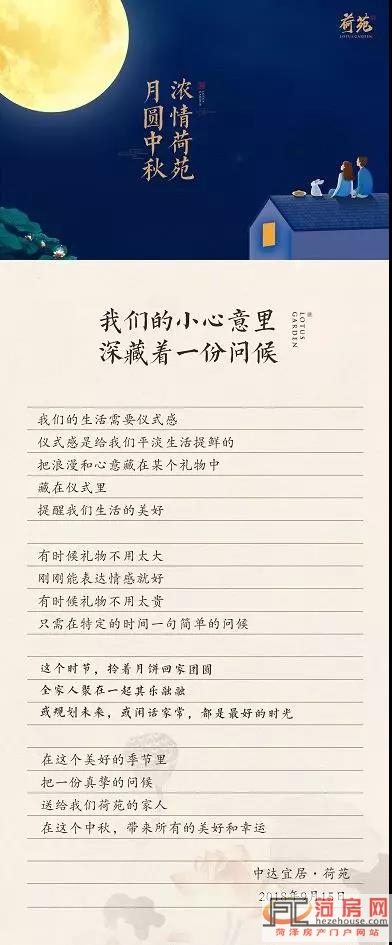 荷苑
LOTUS GARDEN
浓情荷苑
月圆中秋
我们的小心意里
深藏着一份问候
LOTUS
GARDEN
我们的生活需要仪式感
仪式感是给我们平淡生活提鲜的
把浪漫和心意藏在某个礼物中
藏在仪式里
提醒我们生活的美好
有时候礼物不用太大
刚刚能表达情感就好
有时候礼物不用太贵
只需在特定的时间一句简单的问候
这个时节，拎着月饼回家团圆
全家人聚在一起其乐融融
或规划未来，或闲话家常，都是最好的时光
在这个美好的季节里
把一份真挚的问候
送给我们荷苑的家人
在这个中秋，带来所有的美好和幸运
中达宜居·荷苑
2018年9月15日
菏房网
hezehouse.com
菏泽房产门户网站